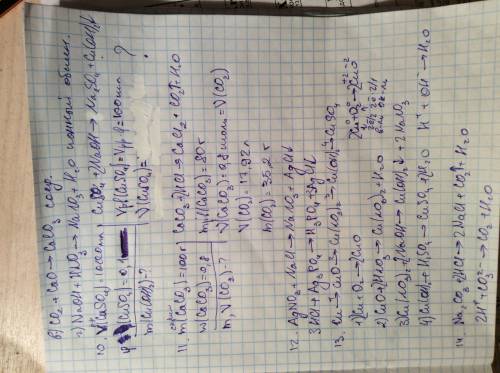 в) CO₂ + CaO → CaCO₃ соед.
г) NaOH + HNO₃ → NaNO₃ + H₂O ионный обмен.
10. CuSO₄ + 2NaOH → Na₂SO₄ + Cu(OH)₂↓
m(Cu(OH)₂)-?
11. m(CaCO₃) = 100г CaCO₃ + 2HCl → CaCl₂ + CO₂↑ + H₂O
w(CaCO₃) = 0,8 m(CaCO₃) = 80 г
m, V(CO₂)-? ν(CaCO₃) = 0,8 моль = ν(CO₂)
V(CO₂) = 17,92 л
m(CO₂) = 35,2 г
12. AgNO₃ + NaCl → NaNO₃ + AgCl↓
3HCl + Ag₃PO₄ → H₃PO₄ + 3AgCl↓
13. Cu → CuO → Cu(NO₃)₂ → Cu(OH)₂ → CuSO₄
1) 2Cu + O₂ → 2CuO
2) CuO + 2HNO₃ → Cu(NO₃)₂ + H₂O
3) Cu(NO₃)₂ + 2NaOH → Cu(OH)₂↓ + 2NaNO₃
4) Cu(OH)₂ + H₂SO₄ → CuSO₄ + 2H₂O H⁺ + OH⁻ → H₂O
14. Na₂CO₃ + 2HCl → 2NaCl + CO₂↑ + H₂O
2H⁺ + CO₃²⁻ → CO₂ + H₂O